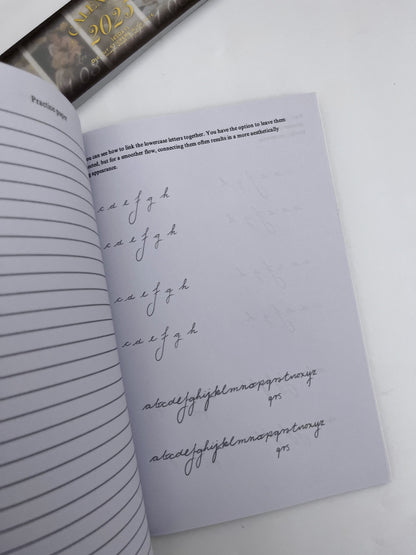 CALEN
2025
Practice paper
you can see how to link the lowercase letters together. You have the option to leave them
ected, but for a smoother flow, connecting them often results in a more aesthetically
appearance.
c d e f g h
c d e f g h
c d e f g h
c d e f g h
abcdefghijklmnopqrstuvwxyz
qrs
abcdefghijklmnopqrstuvwxyz
qrs